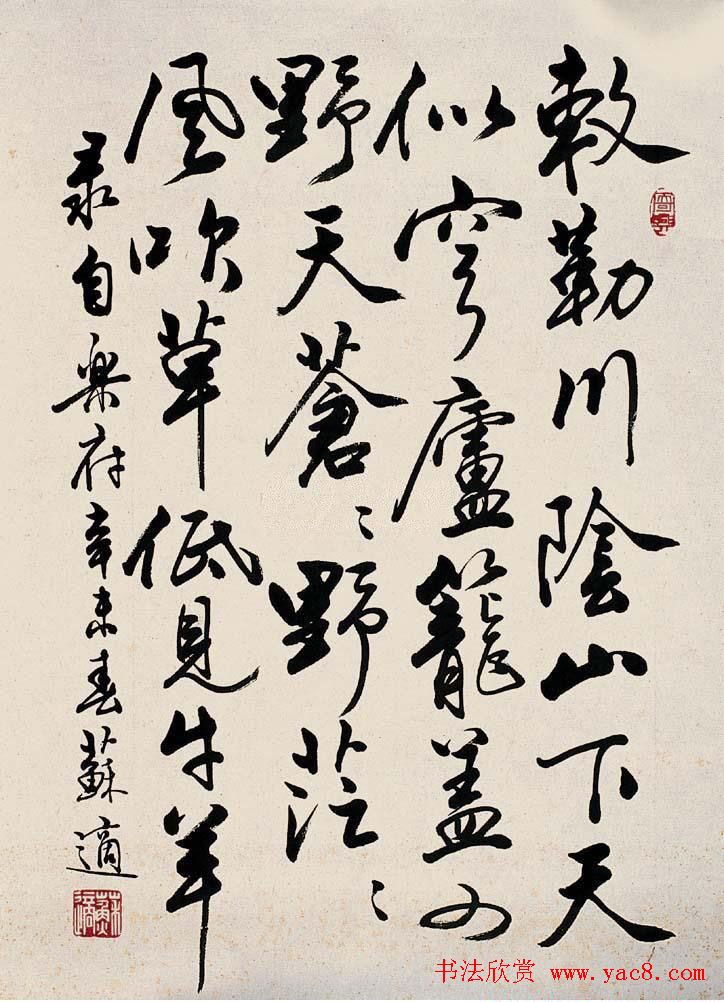 敕勒川陰山下天
似穹廬籠蓋四
野天蒼〻野茫〻
風吹草低見牛羊
录自樂府辛未春蘇適
书法欣赏 www.yac8.com